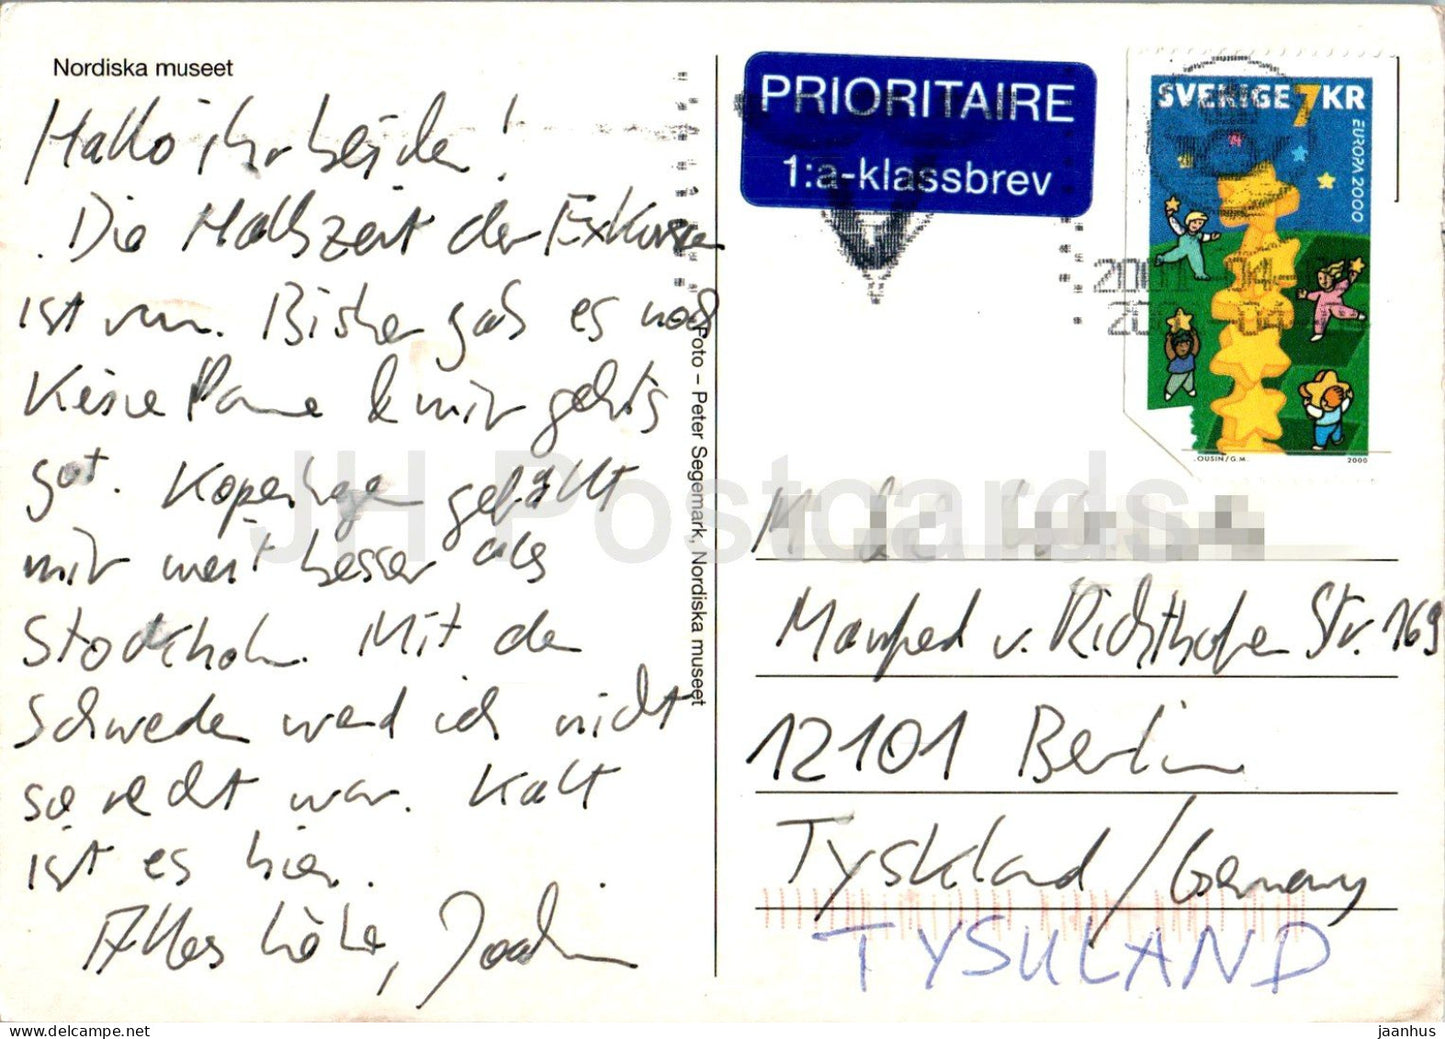 Nordiska museet
Hallo ihr beiden!
Die Halbzeit der Exkursion
ist rum. Bisher gab es noch
keine Panne & mir geht's
gut. Kopenhagen gefällt
mir weit besser als
Stockholm. Mit den
Schweden werd ich nicht
so recht war. Kalt
ist es hier.
Alles Liebe, Joachim
Foto – Peter Segemark, Nordiska museet
PRIORITAIRE
1:a-klassbrev
SVERIGE 7KR
EUROPA 2000
LOUSIN/G.M. 2000
Manfred v. Richthofen Str. 169
12101 Berlin
Tyskland/Germany
TYSKLAND
JH Postcards
jaanhus